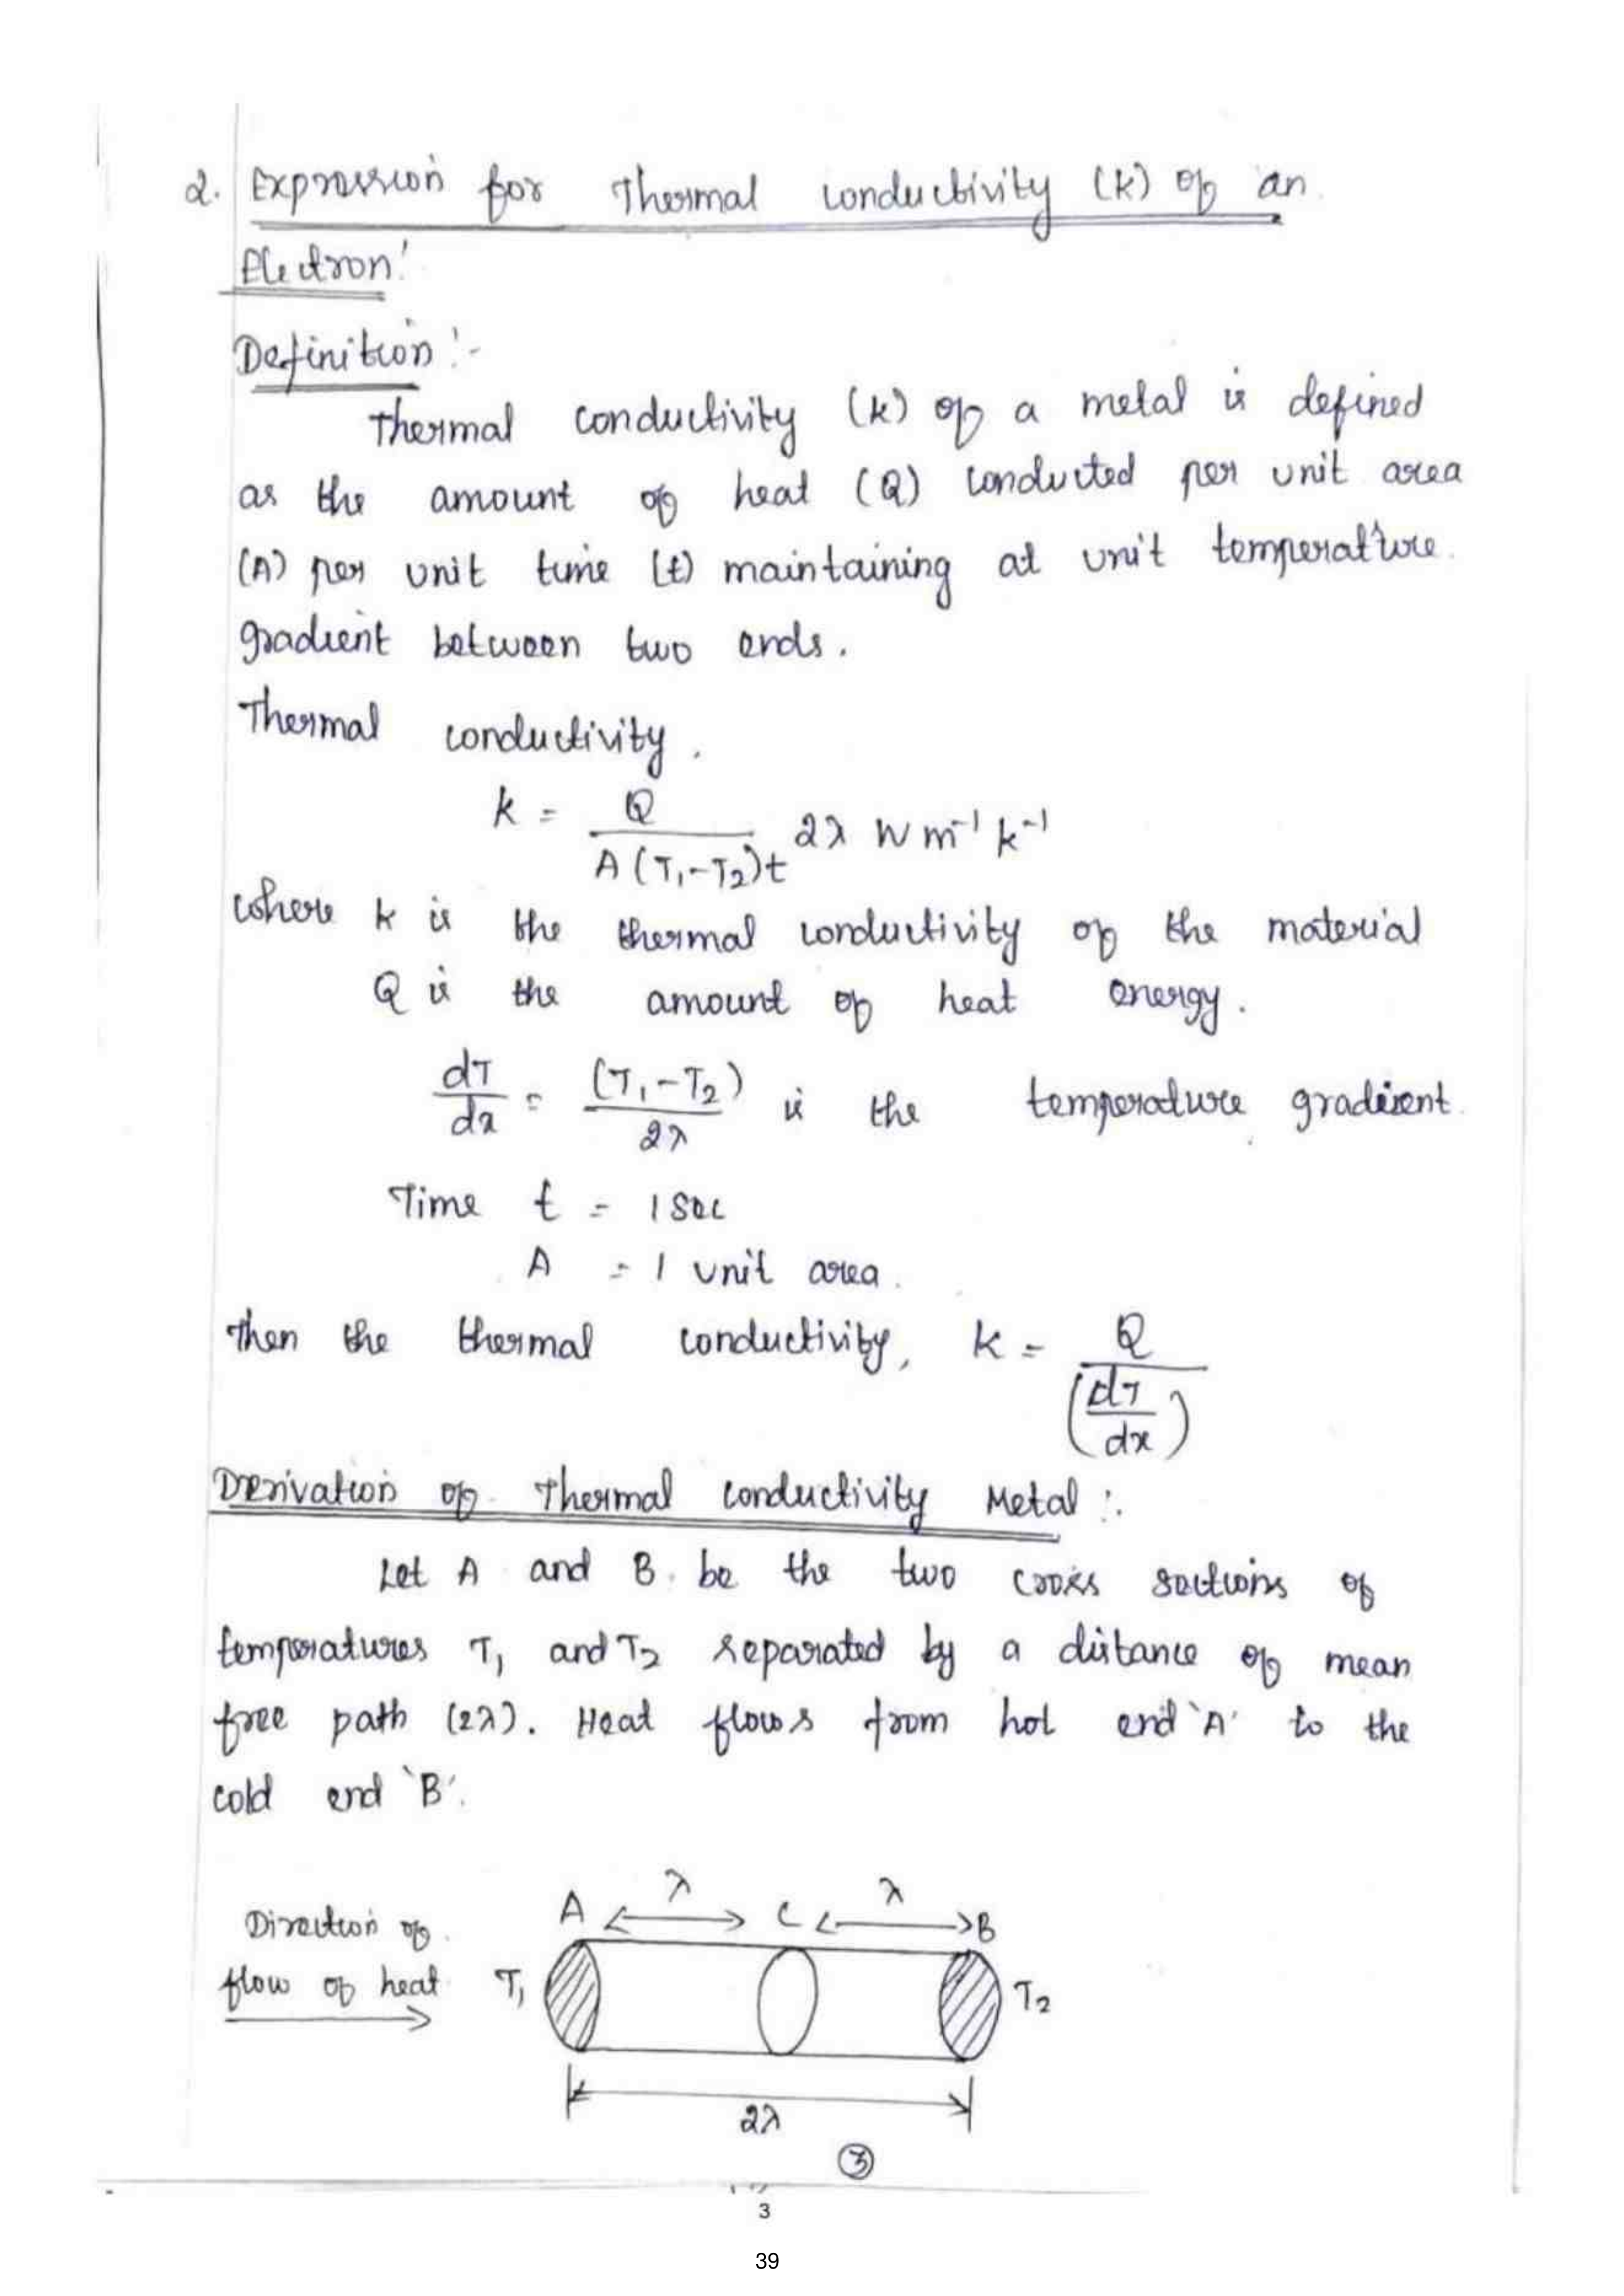 2. Expression for Thermal conductivity (k) of an
Electron:
Definition:-
Thermal conductivity (k) of a metal is defined
as the amount of heat (Q) conducted per unit area
(A) per unit time (t) maintaining at unit temperature
gradient between two ends.
Thermal conductivity.
k = Q / A(T₁-T₂)t 2λ W m⁻¹ k⁻¹
where k is the thermal conductivity of the material
Q is the amount of heat energy.
dT/dx = (T₁-T₂)/2λ is the temperature gradient.
Time t = 1 sec
A = 1 unit area.
Then the thermal conductivity, k = Q/(dT/dx)
Derivation of Thermal conductivity Metal:.
Let A and B be the two cross sections of
temperatures T₁ and T₂ separated by a distance of mean
free path (2λ). Heat flows from hot end 'A' to the
cold end 'B'.
A λ C λ B
Direction of
flow of heat T₁ T₂
2λ
3
3
39